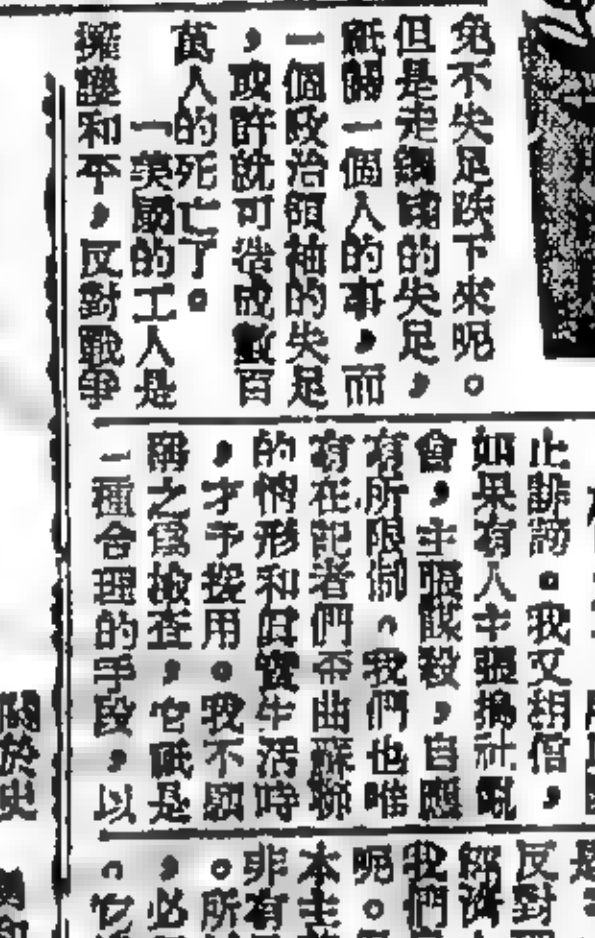 免不失足跌下來呢。
但是走鋼的失足,
祇關一個人的事,而
一個政治領袖的失足
,或許就可造成數百
萬人的死亡了。
一美國的工人是
擁護和平,反對戰爭
止誹謗。我又相信,
如果有人主張搗社
會,主張謀殺,自應
有所限制。我們也唯
有在記者們歪曲蘇聯
的情形和真實生活時
,才予援用。我不願
稱之為檢查,它祇是
一種合理的手段,以
是
反對
經濟
我們
呢。
本主
非有
。所
,必
它
關於史